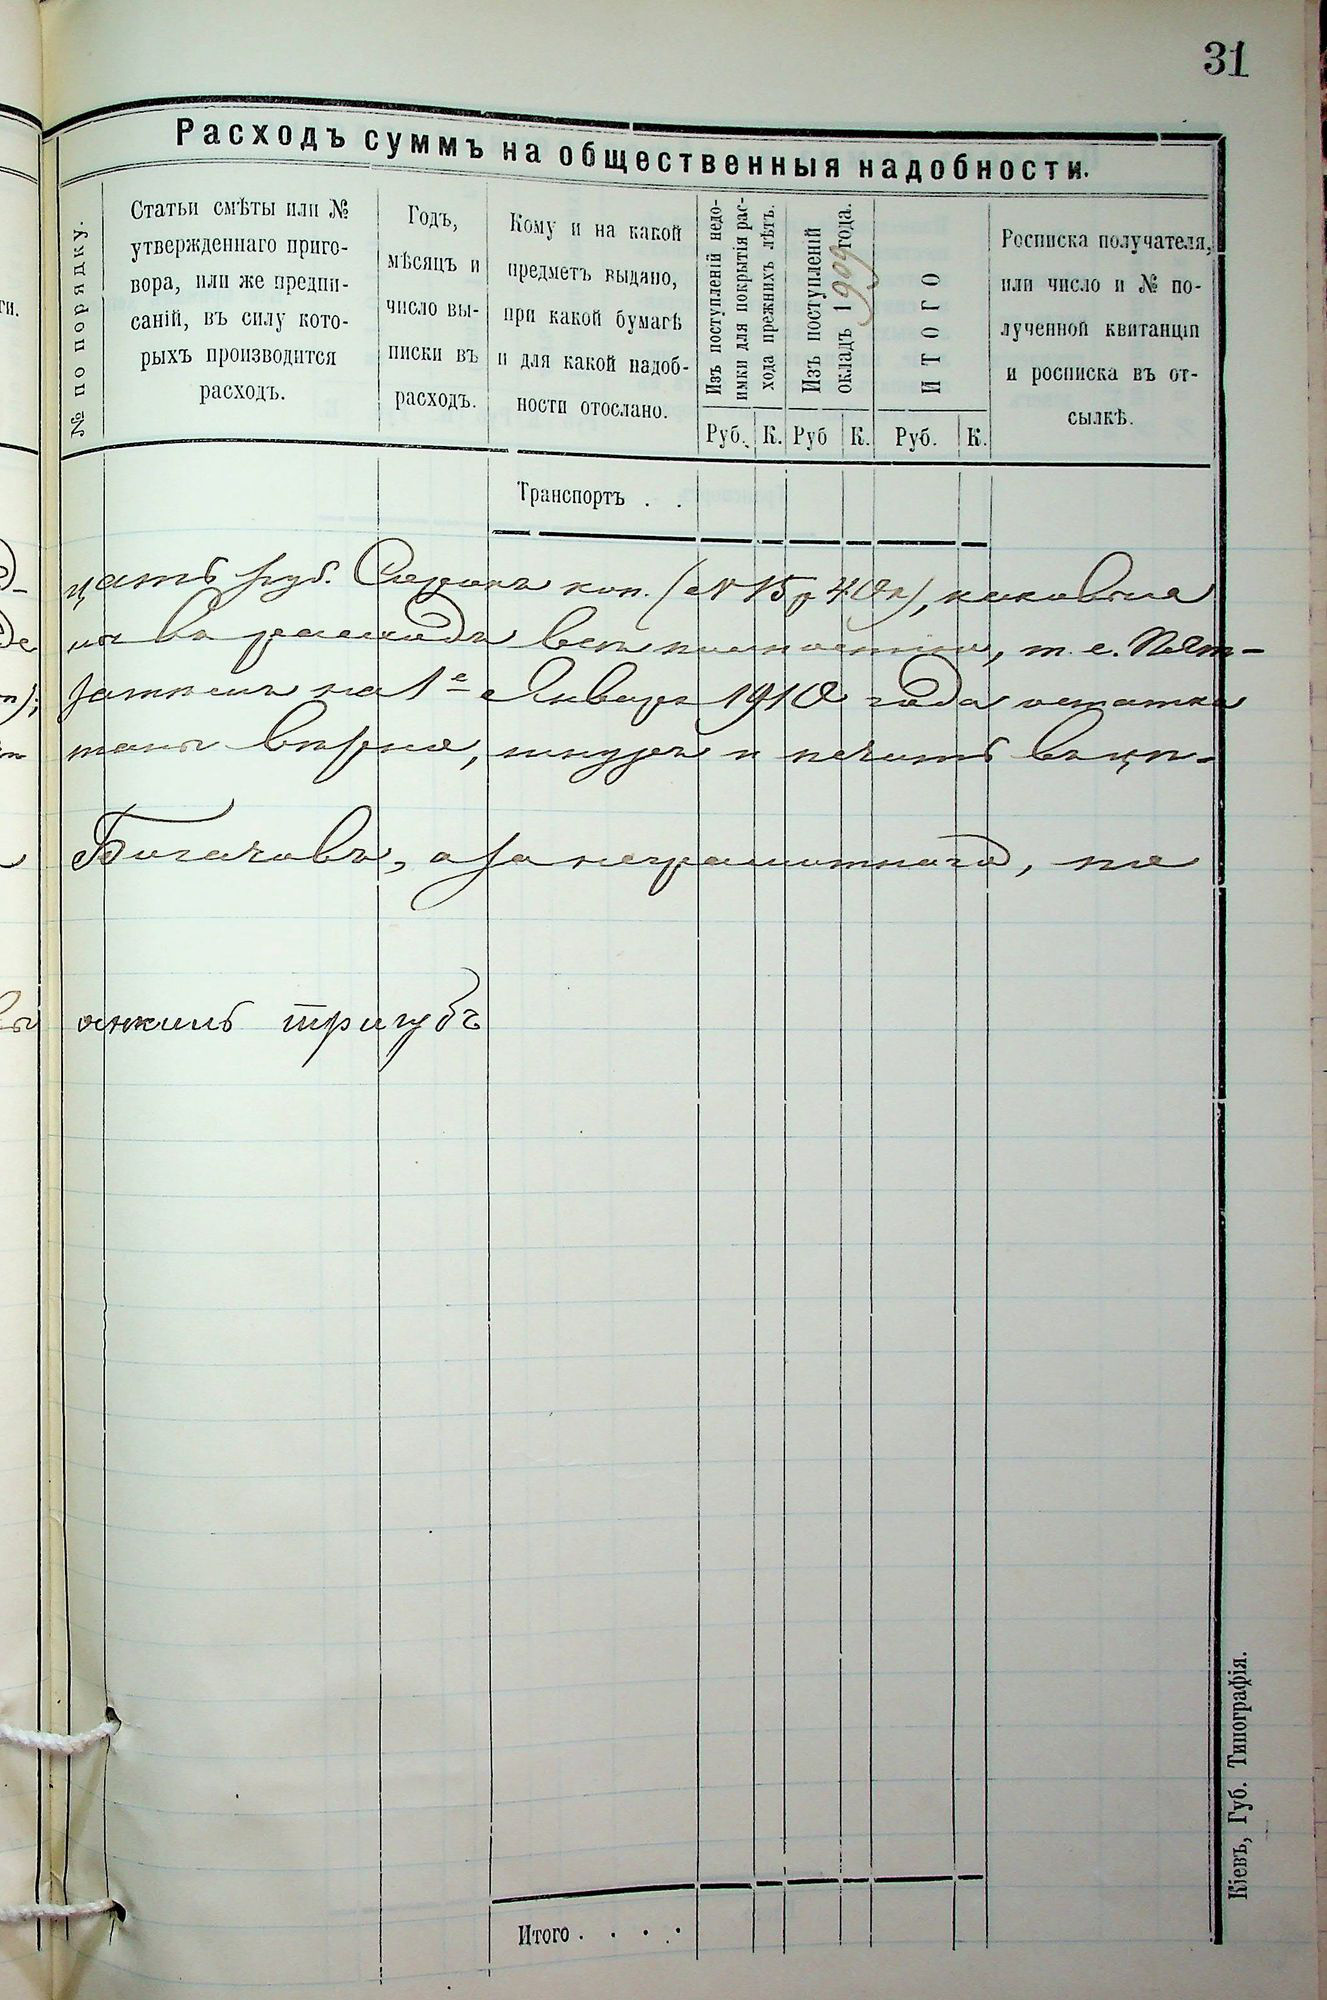 31
Расходъ суммъ на общественныя надобности.
№ по порядку.
Статьи смѣты или №
утвержденнаго приго-
вора, или же предпи-
саній, въ силу кото-
рыхъ производится
расходъ.
Годъ,
мѣсяцъ и
число вы-
писки въ
расходъ.
Кому и на какой
предметъ выдано,
при какой бумагѣ
и для какой надоб-
ности отослано.
Изъ поступленій недо-
имки для покрытія рас-
хода прежнихъ лѣтъ.
Изъ поступленій
окладъ 1909 года.
ИТОГО
Росписка получателя,
или число и № по-
лученной квитанціи
и росписка въ от-
сылкѣ.
Руб. К. Руб К. Руб. К.
Транспортъ . .
цать руб. Сорокъ коп. ( 15 р 40 к), каковые
въ расходъ всѣ полностію, т. е. Пят-
затѣмъ на 1е Января 1910 года остатка
таны вѣрно, шнуръ и печать въ цѣ-
Богачовъ, а за неграмотнаго, по
тригубъ
Итого . . . .
Кіевъ, Губ. Типографія.